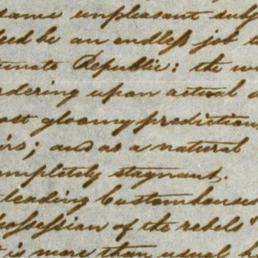 same unpleasant subj
ed be an endless job t
tunate Republic: the w
dering upon actual d
ost gloomy predictions
irs; and as a natural
mpletely stagnant.
leading Customhouses
possession of the rebels
is more than usual h